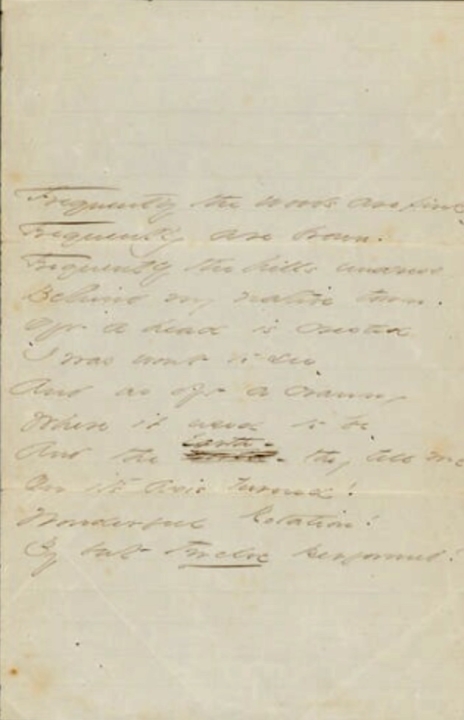 Frequently the woods are pink,
Frequently, are brown.
Frequently the hills undress
Behind my native town.
Oft a head is crested
I was wont to see
And as oft a cranny,
Where it used to be
And the Earth - they tell me
On it's Axis turned!
Wonderful Rotation!
By but twelve performed!